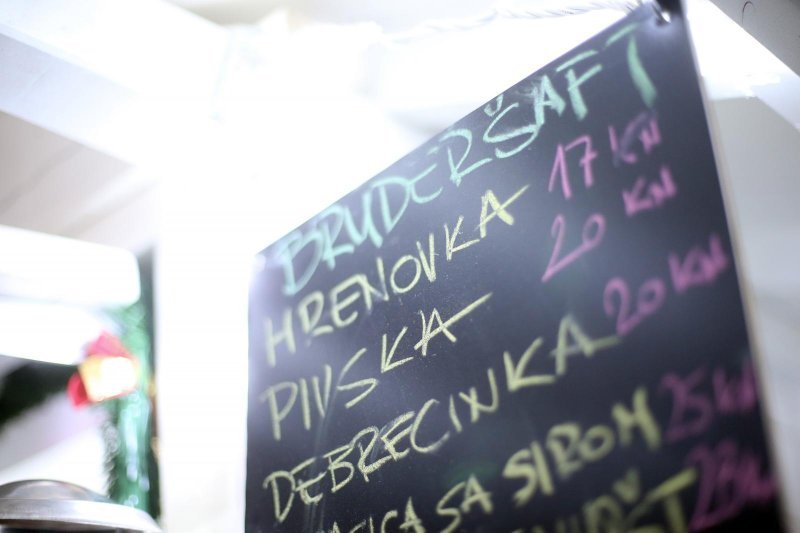 BRUDERŠAFT
HRENOVKA 17 KN
PIVSKA 20 KN
DEBRECINKA 20 KN
SA SIROM 25 KN